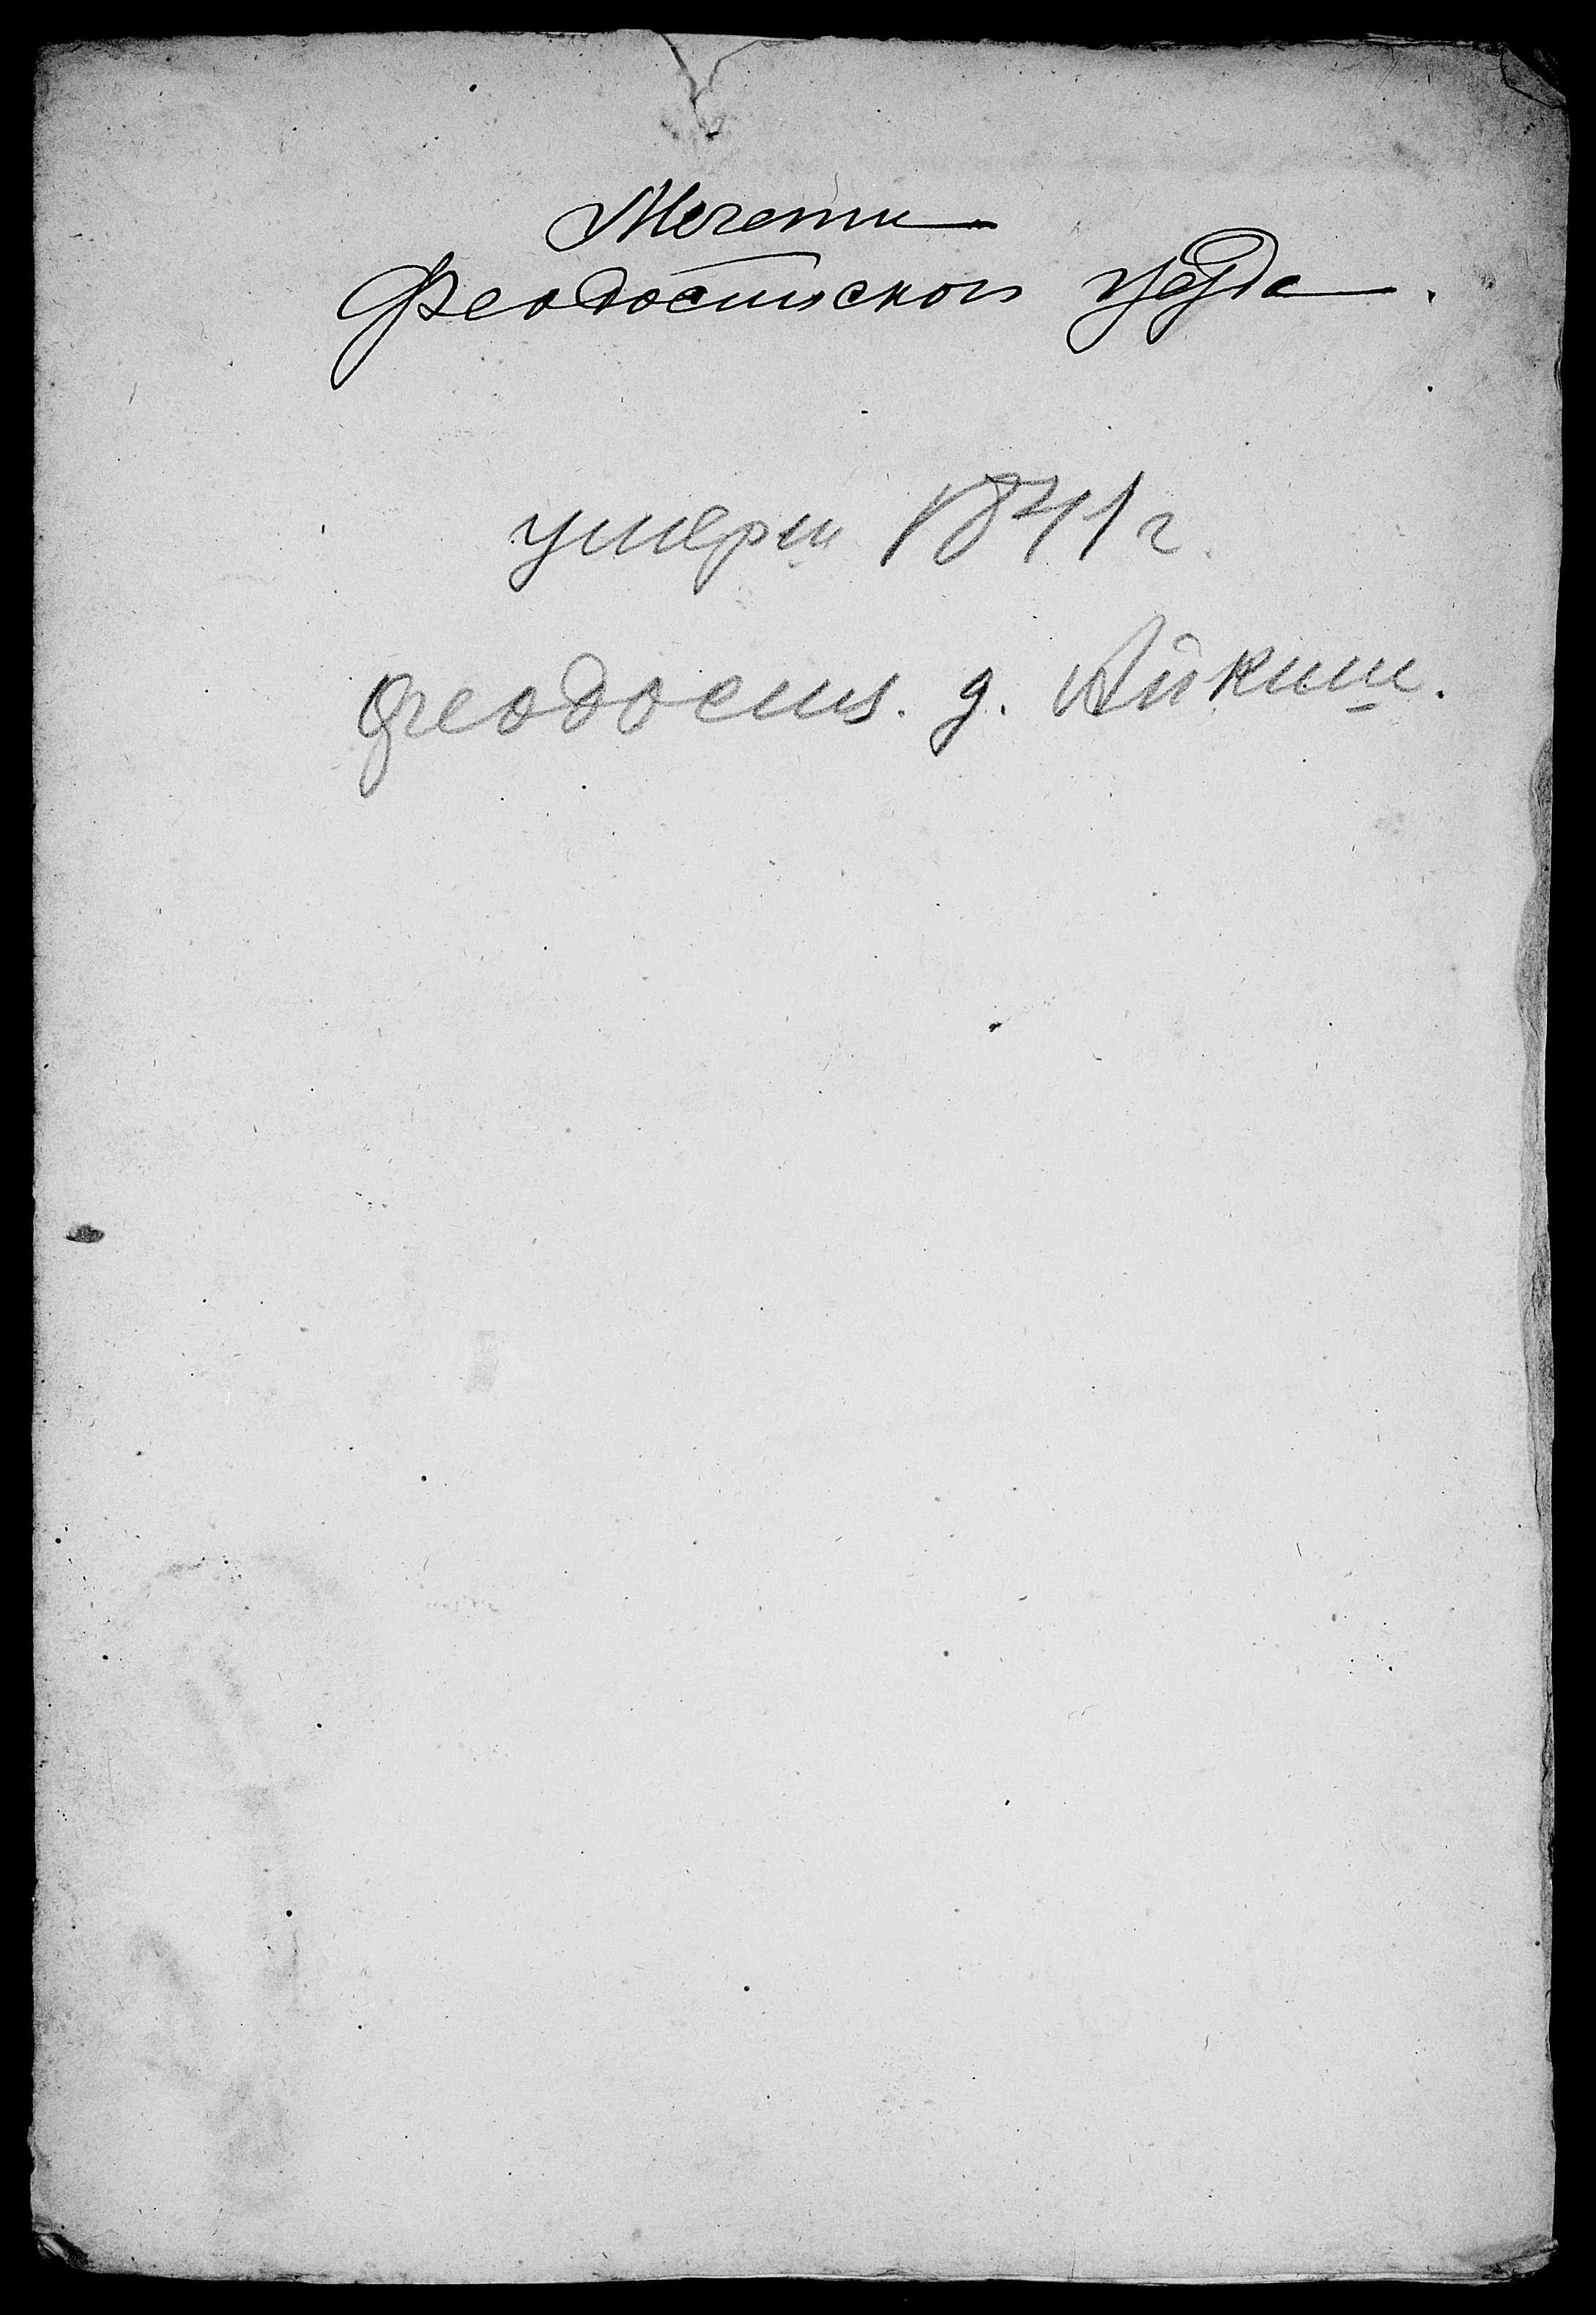 Мечети
Феодосийского уезда.
умерш 1841 г.
Феодосия. д. Айкиш.